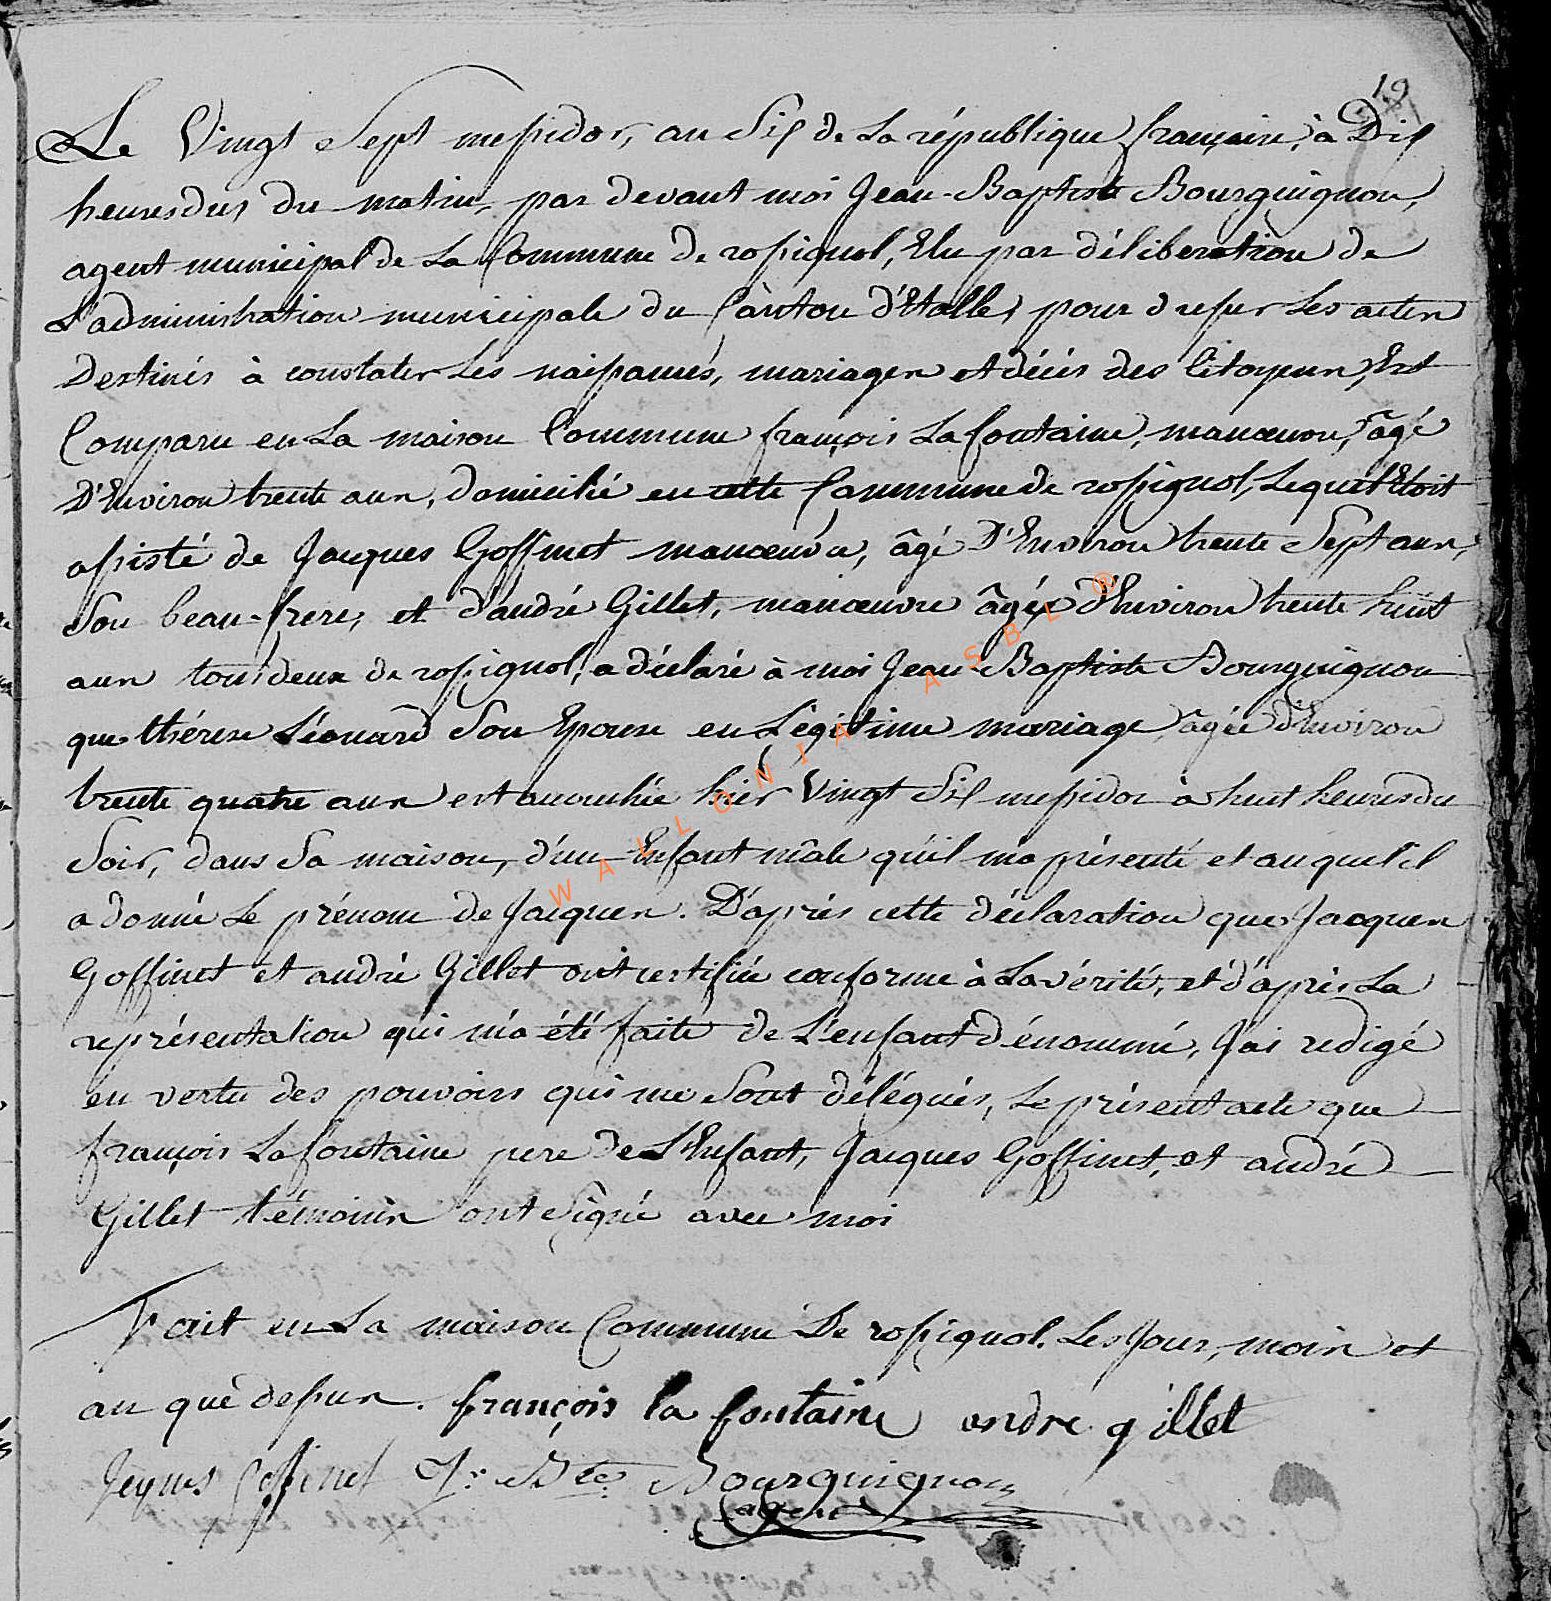 19
Le Vingt Sept messidor, an Six de La république française, à Dix
heuresdus du matin, par devant moi Jean-Baptiste Bourguignon,
agent municipal de La Commune de rossignol, Elu par déliberation de
L'administration municipale du Canton d'Etalle, pour dresser Les actes
Destinés à constater Les naissances, mariages et décès des Citoyens, Est
Comparu en La maison Commune françois Lafontaine, manœuvre, âgé
D'Environ trente ans, domicilié en cette Commune de rossignol, Lequel Etoit
assisté de Jacques Goffinet manœuvre, âgé D'Environ trente Sept ans,
Son beau-frere, et d'andré Gillet, manœuvre âgés d'Environ trente huit
ans tous deux de rossignol, a déclaré à moi Jean Baptiste Bourguignon
que thérese Léonard Son Epouse en Légitime mariage, âgée d'Environ
trente quatre ans est accouchée hier Vingt Six messidor à huit heures du
Soir, dans Sa maison, d'un Enfant mâle qu'il ma présenté et auquel il
a donné Le prénom de Jacques. D'après cette déclaration que Jacques
Goffinet et andré Gillet ont certifiée conforme à La vérité, et d'après La
représentation qui m'a été faite de L'enfant dénommé, J'ai redigé
en vertu des pouvoirs qui me Sont délégués, Le présent acte que
françois Lafontaine pere de L'Enfant, Jacques Goffinet, et andré
Gillet témoins ont Signé avec moi
Fait en La maison Commune De rossignol. Les Jour, mois et
an que dessus. françois la fontaine andre gillet
Jeques Goffinet Jn Bte Bourguignon
agent
WALLONIA ASBL ®